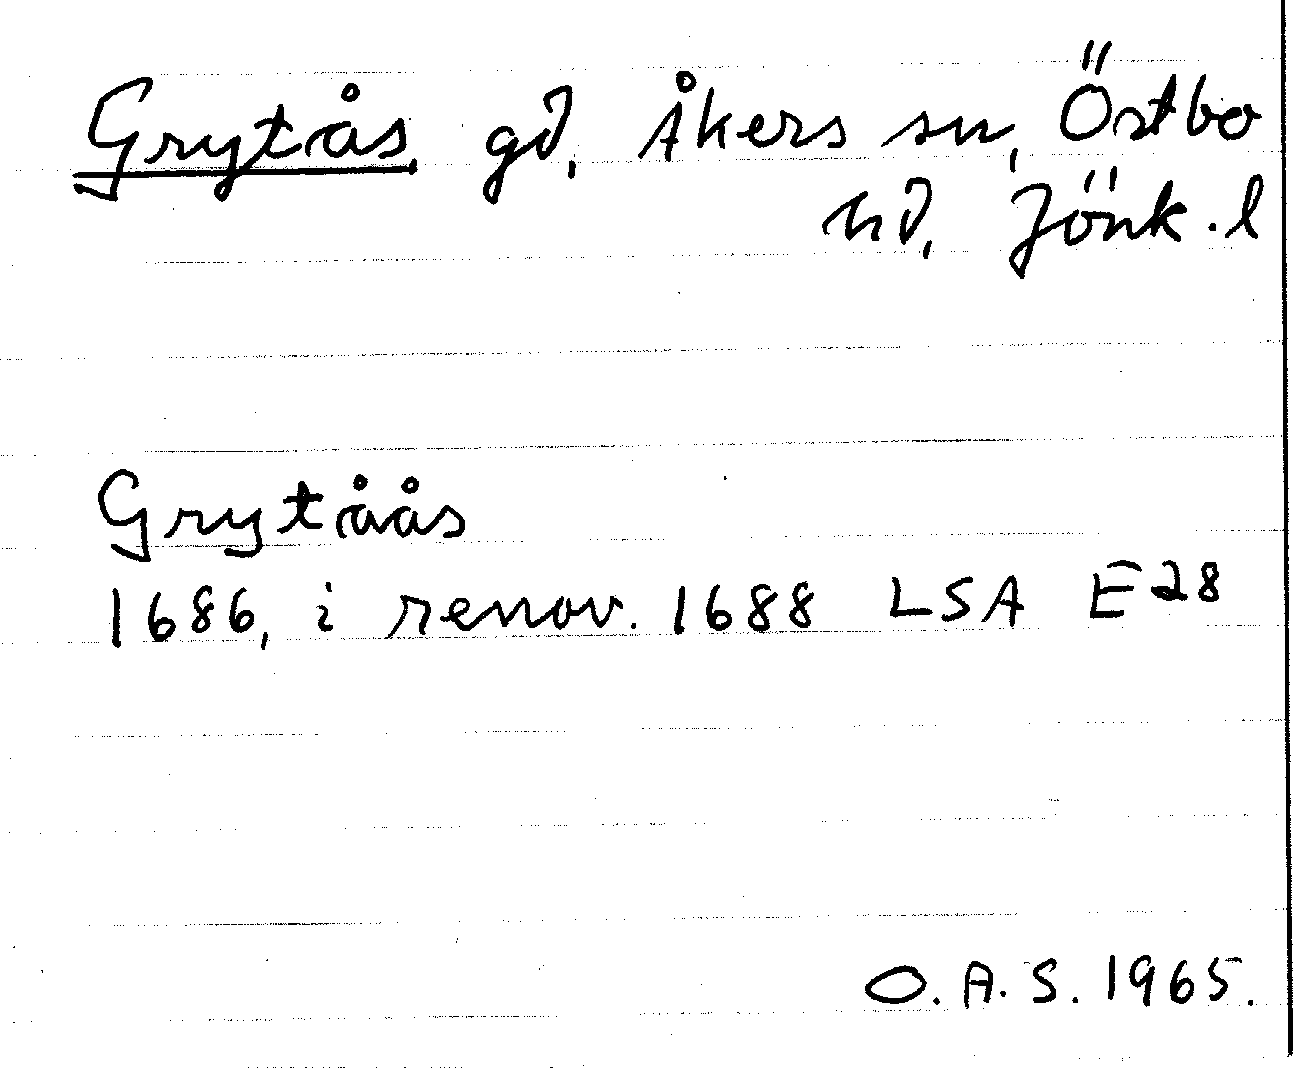 Grytås, gd, Åkers sn, Östbo
hd, Jönk. l
Grytåås
1686, i renov. 1688 LSA E28
O. A. S. 1965.